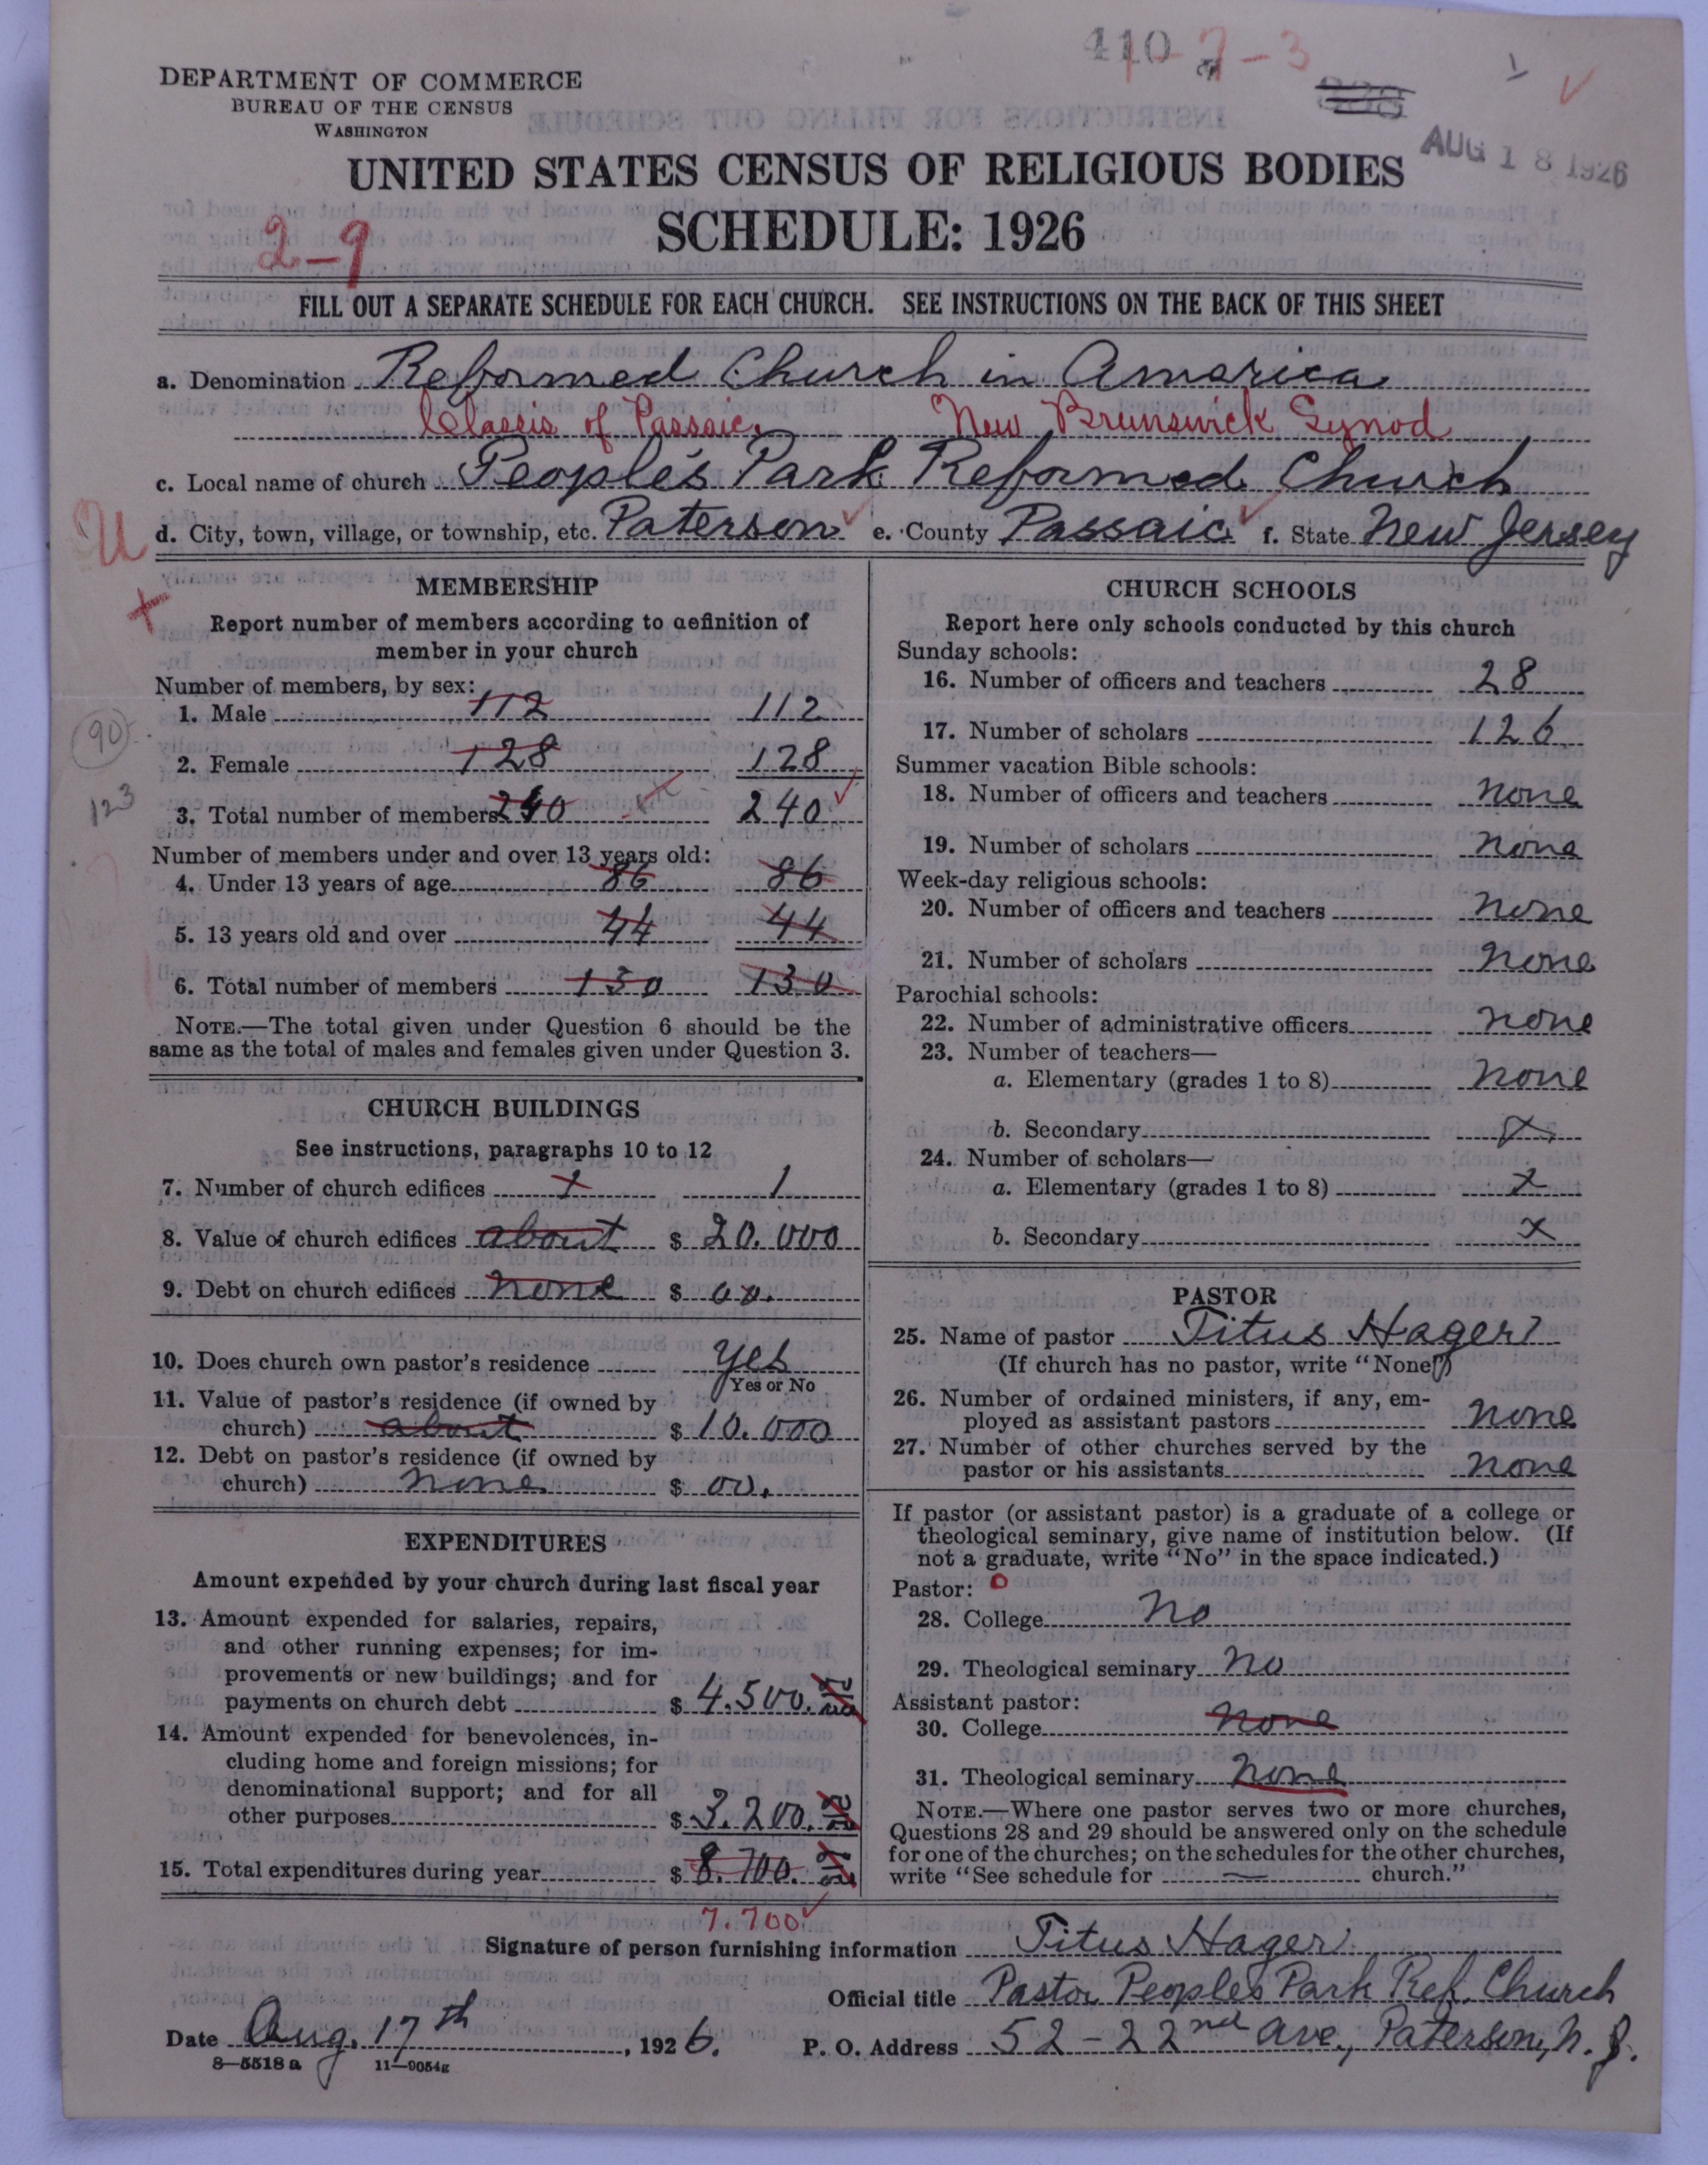 410-7-3
DEPARTMENT OF COMMERCE
BUREAU OF THE CENSUS
WASHINGTON
AUG 18 1926
UNITED STATES CENSUS OF RELIGIOUS BODIES
SCHEDULE: 1926
2-9
FILL OUT A SEPARATE SCHEDULE FOR EACH CHURCH. SEE INSTRUCTIONS ON THE BACK OF THIS SHEET
a. Denomination Reformed Church in America
Classis of Passaic, New Brunswick Synod
c. Local name of church People's Park Reformed Church
d. City, town, village, or township, etc. Paterson e. County Passaic f. State New Jersey
MEMBERSHIP
Report number of members according to definition of
member in your church
Number of members, by sex:
1. Male 112 112
90
2. Female 128 128
123
3. Total number of members 240 240
Number of members under and over 13 years old:
4. Under 13 years of age 86 86
5. 13 years old and over 44 44
6. Total number of members 130 130
NOTE.—The total given under Question 6 should be the
same as the total of males and females given under Question 3.
CHURCH BUILDINGS
See instructions, paragraphs 10 to 12
7. Number of church edifices 1 1
8. Value of church edifices about $ 20.000
9. Debt on church edifices none $ 00.
10. Does church own pastor's residence yes
Yes or No
11. Value of pastor's residence (if owned by
church) about $ 10.000
12. Debt on pastor's residence (if owned by
church) none $ 00.
EXPENDITURES
Amount expended by your church during last fiscal year
13. Amount expended for salaries, repairs,
and other running expenses; for im-
provements or new buildings; and for
payments on church debt $ 4.500.
14. Amount expended for benevolences, in-
cluding home and foreign missions; for
denominational support; and for all
other purposes $ 3.200.
15. Total expenditures during year $ 8.700.
7.700
CHURCH SCHOOLS
Report here only schools conducted by this church
Sunday schools:
16. Number of officers and teachers 28
17. Number of scholars 126
Summer vacation Bible schools:
18. Number of officers and teachers none
19. Number of scholars none
Week-day religious schools:
20. Number of officers and teachers none
21. Number of scholars none
Parochial schools:
22. Number of administrative officers none
23. Number of teachers—
a. Elementary (grades 1 to 8) none
b. Secondary x
24. Number of scholars—
a. Elementary (grades 1 to 8) x
b. Secondary x
PASTOR
25. Name of pastor Titus Hager
(If church has no pastor, write "None")
26. Number of ordained ministers, if any, em-
ployed as assistant pastors none
27. Number of other churches served by the
pastor or his assistants none
If pastor (or assistant pastor) is a graduate of a college or
theological seminary, give name of institution below. (If
not a graduate, write "No" in the space indicated.)
Pastor:
28. College No
29. Theological seminary No
Assistant pastor:
30. College none
31. Theological seminary none
NOTE.—Where one pastor serves two or more churches,
Questions 28 and 29 should be answered only on the schedule
for one of the churches; on the schedules for the other churches,
write "See schedule for — church."
Signature of person furnishing information Titus Hager
Official title Pastor Peoples Park Ref. Church
Date Aug. 17th, 1926. P. O. Address 52-22nd Ave., Paterson, N. J.
8—5518 a 11—9054g